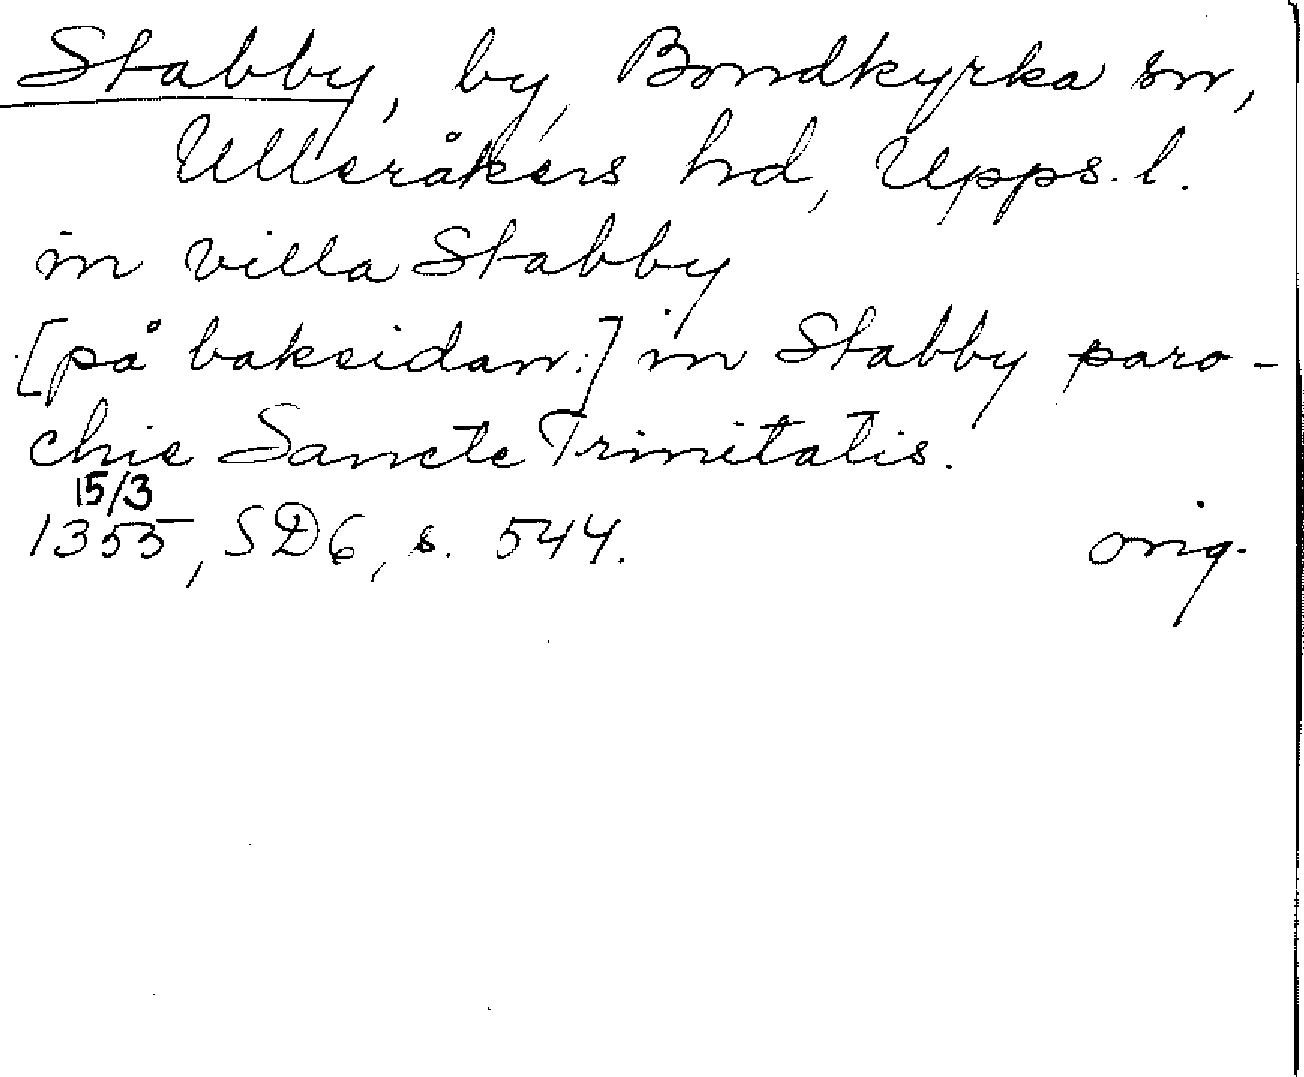 Stabby, by, Bondkyrka sn,
Ulleråkers hd, Upps. l.
in villa Stabby
[på baksidan:] in Stabby paro-
chie Sancte Trinitatis.
15/3
1355, SD6, s. 544. orig.